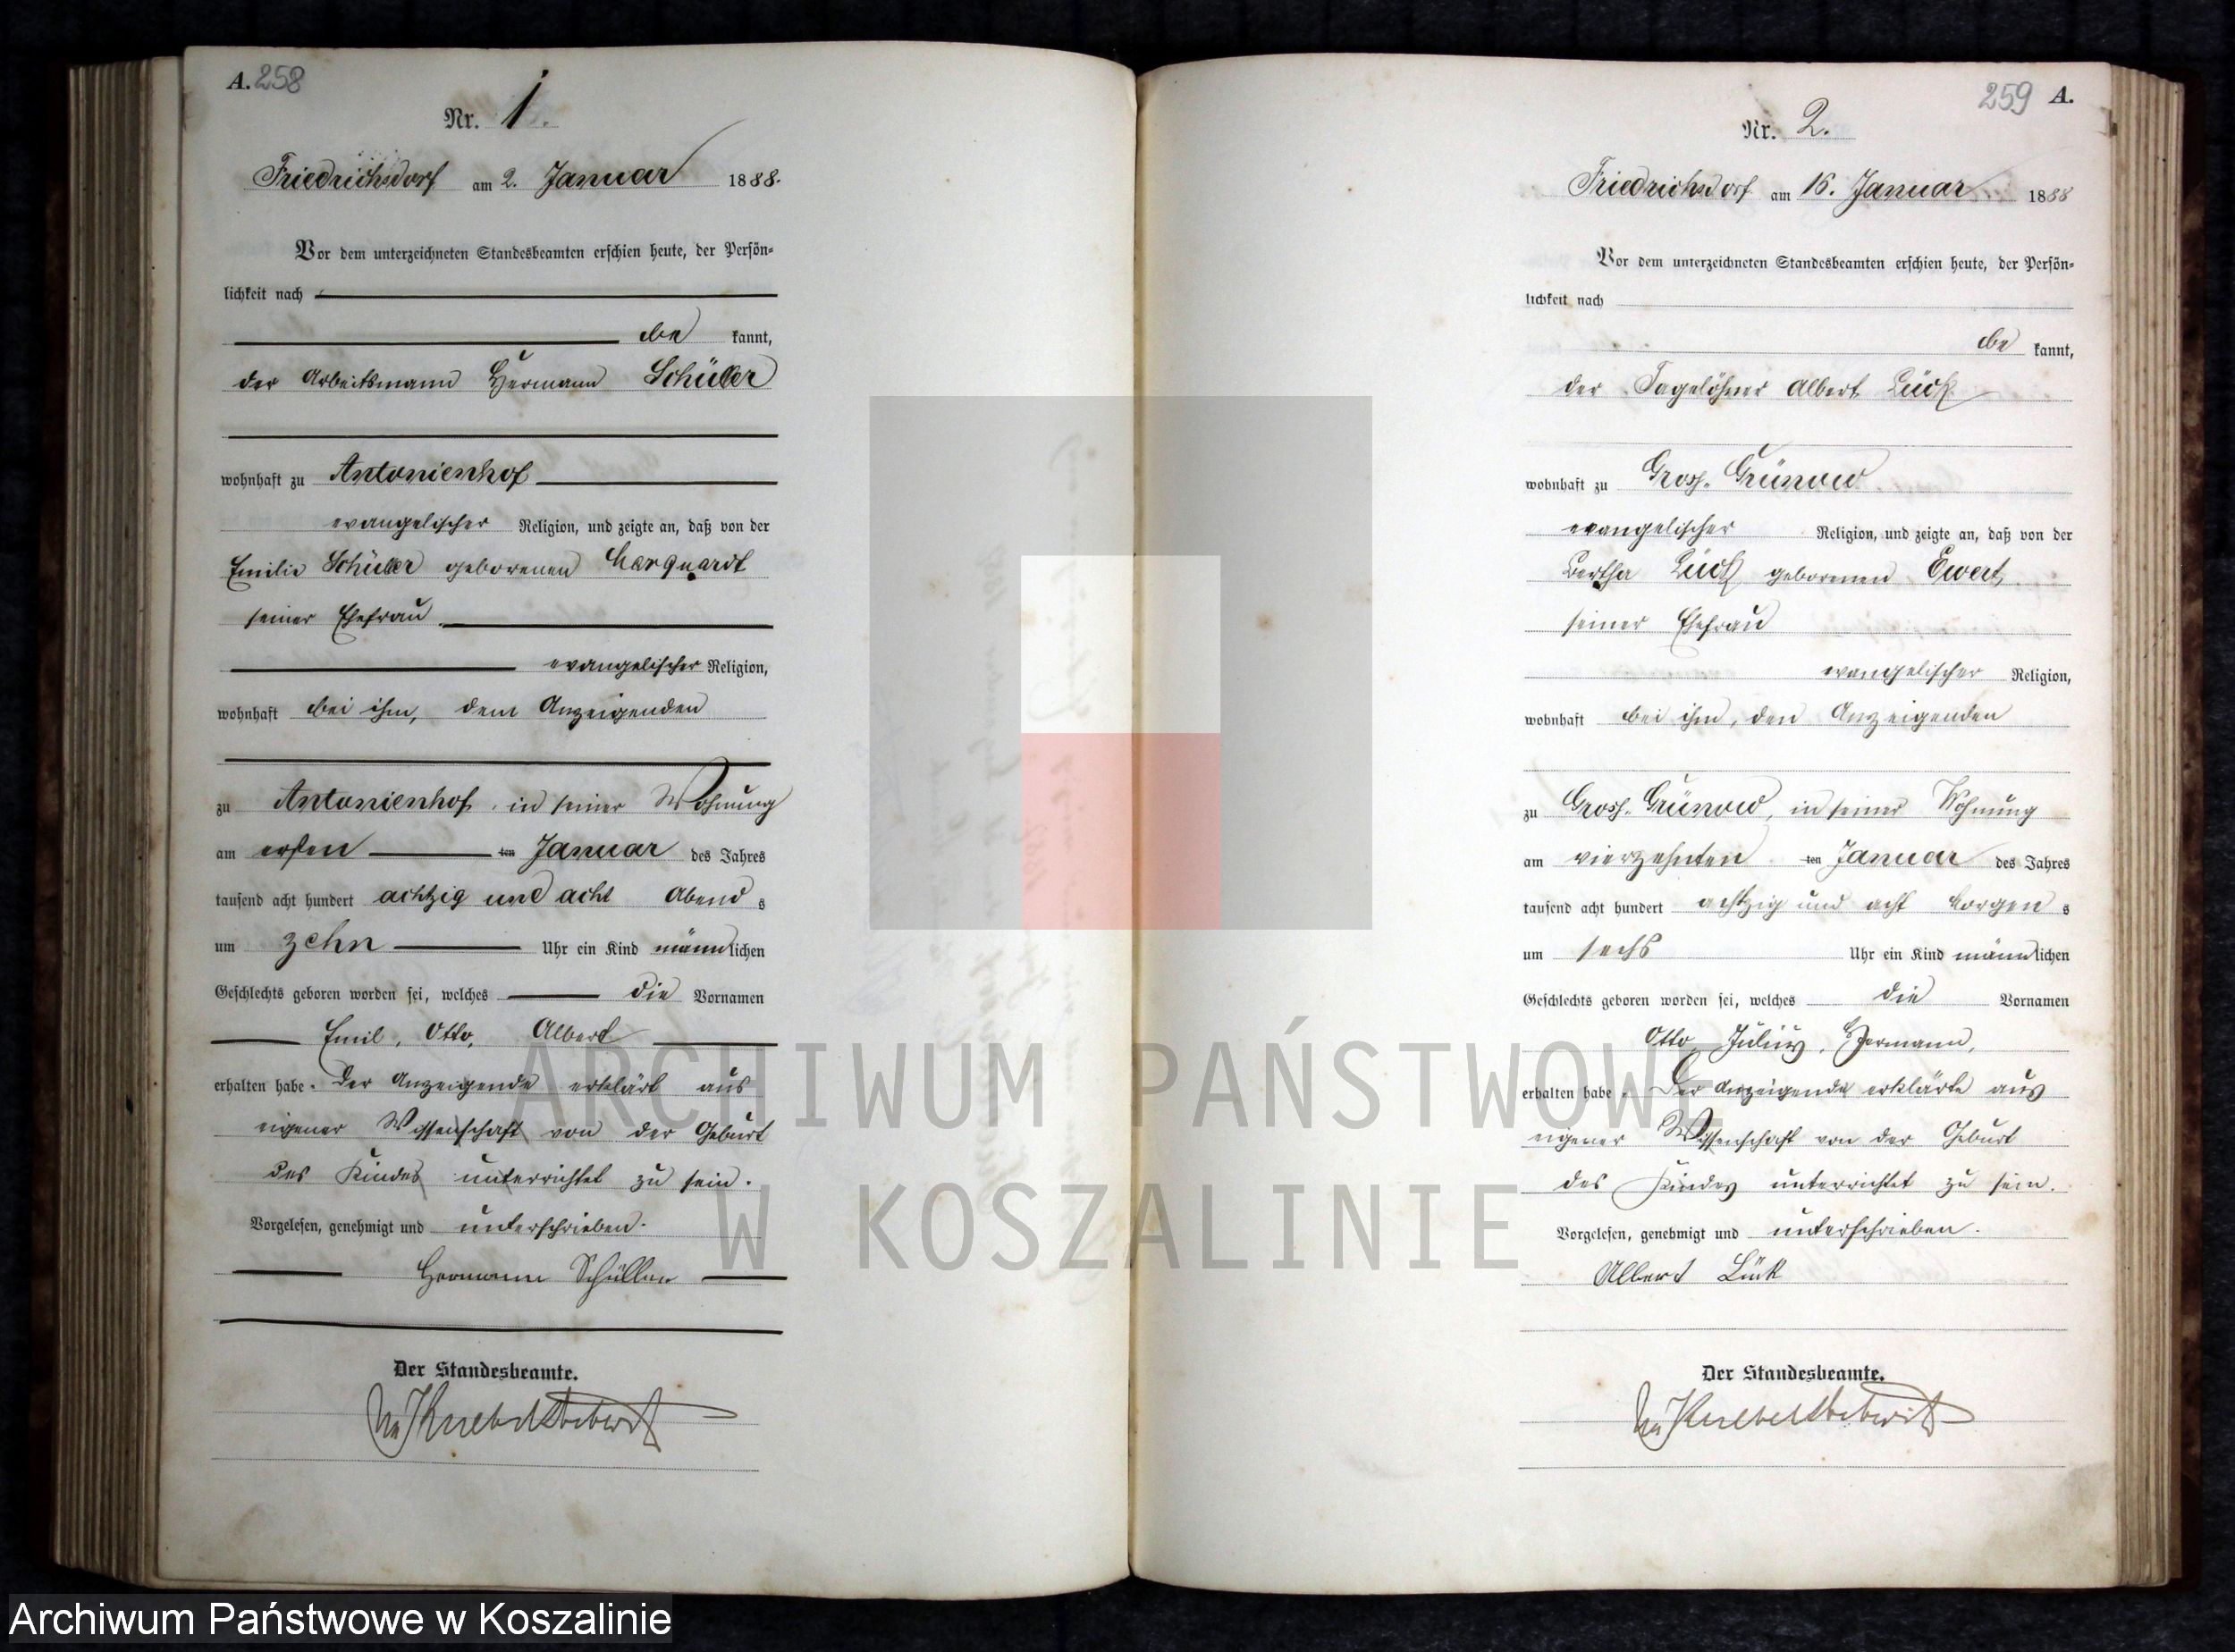 A. 258
Nr. 1.
Friedrichsdorf am 2. Januar 1888.
Vor dem unterzeichneten Standesbeamten erschien heute, der Persön-
lichkeit nach
be kannt,
der Arbeitsmann Hermann Schüller
wohnhaft zu Antonienhof
evangelischer Religion, und zeigte an, daß von der
Emilie Schüller geborenen Marquardt
seiner Ehefrau
evangelischer Religion,
wohnhaft bei ihm, dem Anzeigenden
zu Antonienhof in seiner Wohnung
am ersten ten Januar des Jahres
tausend acht hundert achtzig und acht Abend s
um zehn Uhr ein Kind männlichen
Geschlechts geboren worden sei, welches die Vornamen
Emil, Otto, Albert
erhalten habe. Der Anzeigende erklärt aus
eigener Wissenschaft von der Geburt
des Kindes unterrichtet zu sein.
Vorgelesen, genehmigt und unterschrieben.
Hermann Schüller
Der Standesbeamte.
259 A.
Nr. 2.
Friedrichsdorf am 16. Januar 1888
Vor dem unterzeichneten Standesbeamten erschien heute, der Persön-
lichkeit nach
be kannt,
der Tagelöhner Albert Lück
wohnhaft zu Gross-Grünow
evangelischer Religion, und zeigte an, daß von der
Bertha Lück geborenen Ewert,
seiner Ehefrau
evangelischer Religion,
wohnhaft bei ihm, den Anzeigenden
zu Gross-Grünow, in seiner Wohnung
am vierzehnten ten Januar des Jahres
tausend acht hundert achtzig und acht Morgen s
um sechs Uhr ein Kind männlichen
Geschlechts geboren worden sei, welches die Vornamen
Otto, Julius, Hermann,
erhalten habe. Der Anzeigende erklärte aus
eigener Wissenschaft von der Geburt
des Kindes unterrichtet zu sein.
Vorgelesen, genehmigt und unterschrieben.
Albert Lück
Der Standesbeamte.
ARCHIWUM PAŃSTWOWE
W KOSZALINIE
Archiwum Państwowe w Koszalinie